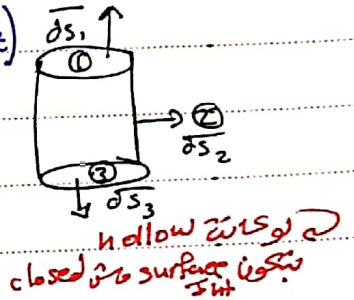 dS₁
①
②
dS₂
③
dS₃
لو كانت hollow
بتكون surface مش closed
Int